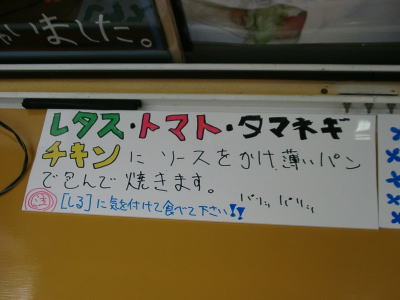 いました。
レタス・トマト・タマネギ
チキンにソースをかけ、薄いパン
で包んで焼きます。
パリッパリッ
注 [しる]に気を付けて食べて下さい!!